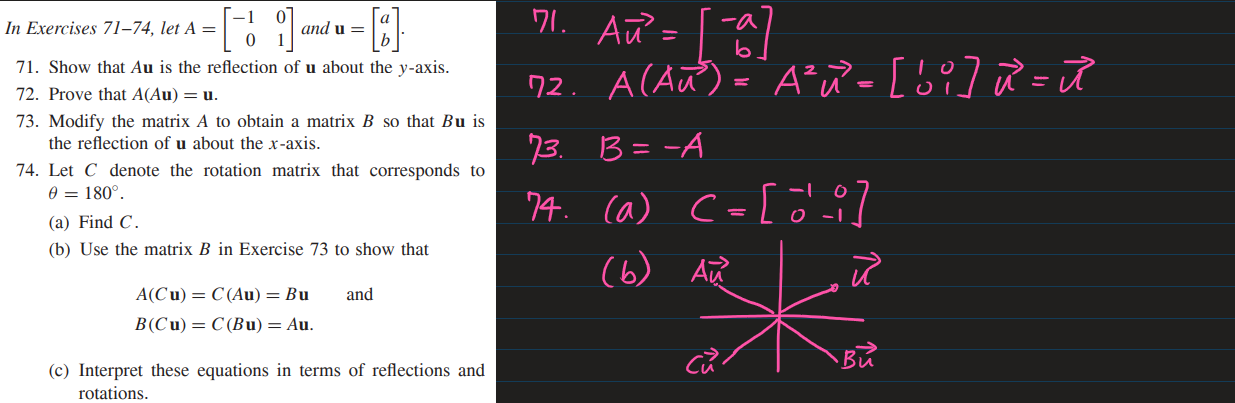 In Exercises 71–74, let A = [−1 0; 0 1] and u = [a; b].
71. Show that Au is the reflection of u about the y-axis.
72. Prove that A(Au) = u.
73. Modify the matrix A to obtain a matrix B so that Bu is
the reflection of u about the x-axis.
74. Let C denote the rotation matrix that corresponds to
θ = 180°.
(a) Find C.
(b) Use the matrix B in Exercise 73 to show that
A(Cu) = C(Au) = Bu and
B(Cu) = C(Bu) = Au.
(c) Interpret these equations in terms of reflections and
rotations.
71. Au⃗ = [−a; b]
72. A(Au⃗) = A²u⃗ = [1 0; 0 1] u⃗ = u⃗
73. B = −A
74. (a) C = [−1 0; 0 −1]
(b) Au⃗ u⃗
Cu⃗ Bu⃗